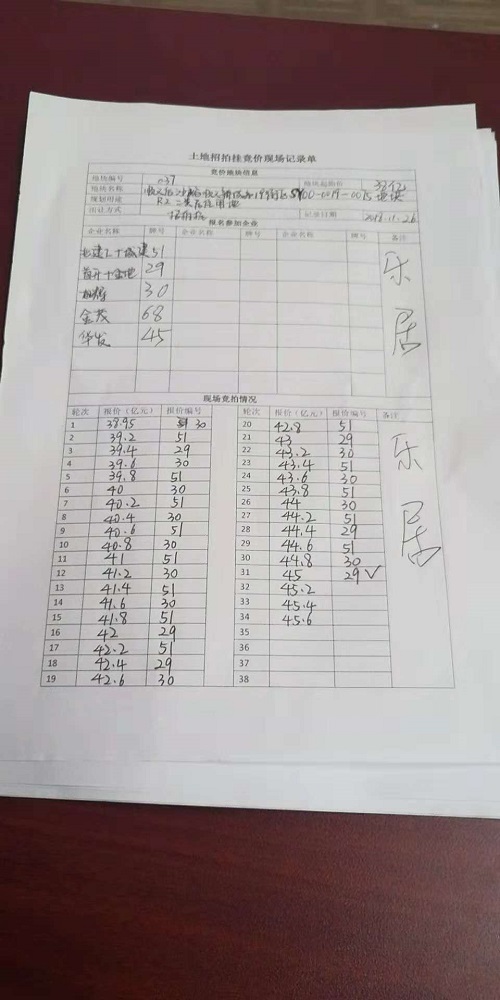 土地招拍挂竞价现场记录单
竞价地块信息
地块编号 037 地块起始价 33亿
地块名称 SY00-0019-0015地块
规划用途 R2二类居住用地
出让方式 招拍挂 记录日期 2018.11.26
报名参加企业
企业名称 牌号 企业名称 牌号 企业名称 牌号 备注
北建工+城建 51
首开+金地 29
旭辉 30
金茂 68
华发 45
乐居
现场竞拍情况
轮次 报价（亿元） 报价编号 轮次 报价（亿元） 报价编号 备注
1 38.95 30 20 42.8 51
2 39.2 51 21 43 29
3 39.4 29 22 43.2 30
4 39.6 30 23 43.4 51
5 39.8 51 24 43.6 30
6 40 30 25 43.8 51
7 40.2 51 26 44 30
8 40.4 30 27 44.2 51
9 40.6 51 28 44.4 29
10 40.8 30 29 44.6 51
11 41 51 30 44.8 30
12 41.2 30 31 45 29 √
13 41.4 51 32 45.2
14 41.6 30 33 45.4
15 41.8 51 34 45.6
16 42 29 35
17 42.2 51 36
18 42.4 29 37
19 42.6 30 38
乐居